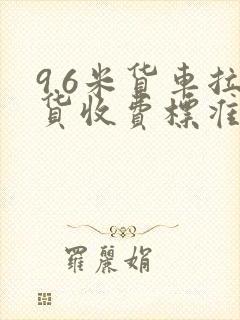 9.6米货车拉
货收费標准
羅麗娟